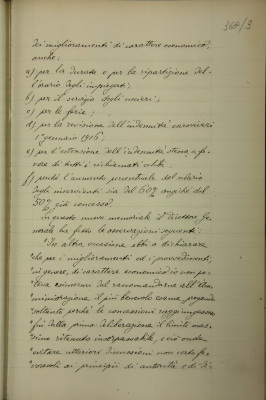 dei miglioramenti di carattere economico,
anche:
a) per la durata e per la ripartizione del-
l'orario degli impiegati;
b) per il servizio degli uscieri;
c) per le ferie;
d) per la revisione dell'indennità caroviveri
1° gennaio 1916;
e) per l'estensione dell'indennità stessa a fa-
vore di tutti i richiamati celibi;
f) perchè l'aumento percentuale del salario
degli inservienti sia del 60% anzichè del
50% già concesso.
In questo nuovo memoriale il Direttore Ge-
nerale ha fatto le osservazioni seguenti:
"In altra occasione ebbi a dichiarare
"che per i miglioramenti ed i provvedimenti,
"in genere, di carattere economico io non po-
"teva esimermi dal raccomandarne all'Am-
"ministrazione il più benevolo esame, pregando
"soltanto perchè le concessioni raggiungesse-
"ro dalla prima deliberazione il limite mas-
"simo ritenuto insorpassabile, e ciò onde
"evitare ulteriori discussioni non certo fa-
"vorevoli ai principii di autorità e di di-